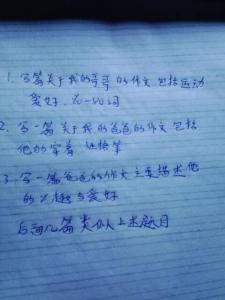 1. 写篇关于我的哥哥的作文,包括运动
爱好,
2. 写一篇关于我的爸爸的作文包括
他的穿着
3. 写一篇爸爸的作文主要描述他
的兴趣与爱好
后面几篇类似上述题目